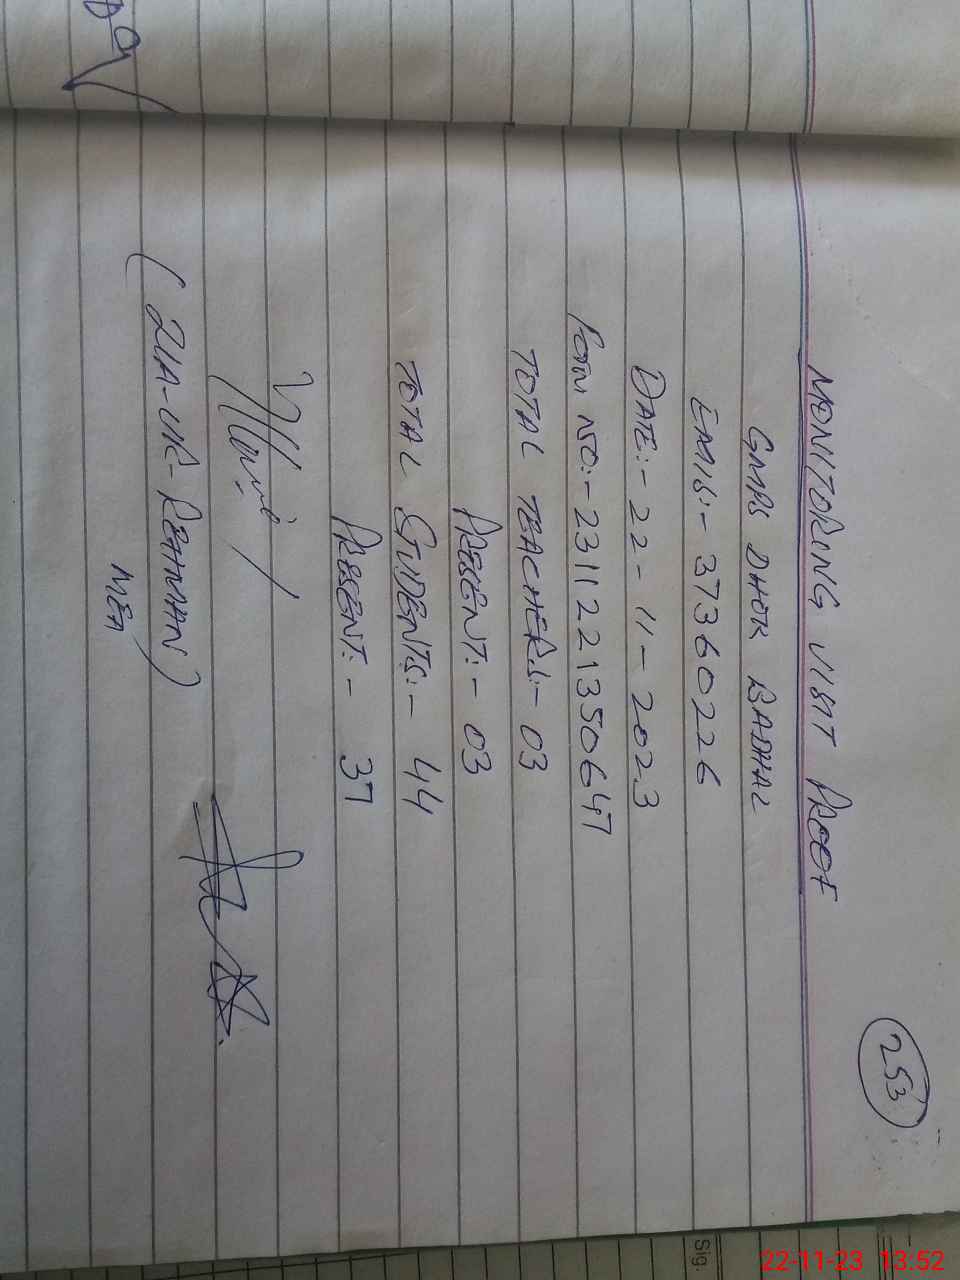 253
MONITORING VISIT PROOF
GMPS DHOK BADHAL
EMIS:- 37360226
DATE:- 22-11-2023
FORM NO:- 231122135064
TOTAL TEACHERS:- 03
PRESENT:- 03
TOTAL STUDENTS:- 44
PRESENT:- 37
(ZIA-UR-REHMAN)
MEA
Sig.
22-11-23 13:52